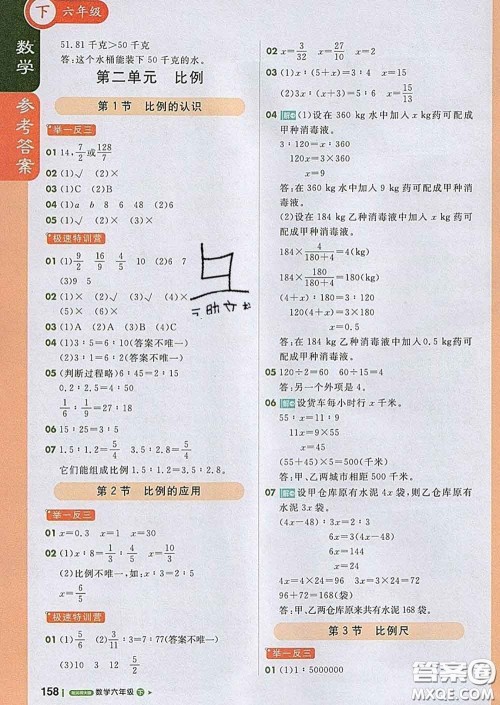 下 六年级
数学
参考答案
51.81 千克>50 千克
答:这个水桶能装下 50 千克的水。
第二单元 比例
第 1 节 比例的认识
举一反三
01 14, 7/2 或 128/7
02 (1)√ (2)×
03 (1)C (2)B
04 (1)a b 8 6 48 (2)6
05 (1)√ (2)×
极速特训营
01 (1) 9/2 16/9 4/5 10 (2)6 7
(3)9 5
02 (1)× (2)√ (3)√ (4)×
03 (1)A (2)A (3)B (4)C
04 (1)3∶5=6∶10(答案不唯一)
05 (判断过程略)6∶45=2∶15
0.2∶2.5=4∶50
1/6∶1/9=27∶18
06 15∶25=3∶5
07 1.5∶1.2=5/4 3.5∶2.8=5/4
它们能组成比例 1.5∶1.2=3.5∶2.8。
第 2 节 比例的应用
举一反三
01 x=0.3 x=1 x=30
02 (1)x∶8=1/3∶4/5 x=10/3
(2)比例不唯一,如:x∶3=2∶5
x=6/5
极速特训营
01 (1)5/6 (2)3 (3)33∶3=7∶77(答案不唯一)
(4)6 (5)45
158 数学六年级 下
02 x=3/32 x=27/10 x=2
03 (1)x∶(5+x)=3∶4 x=15
(2)3x∶(x+3)=5∶6 x=15/13
04 (1)设在 360 kg 水中加入 x kg 药可配成
甲种消毒液。
3∶120=x∶360
120x=3×360
x=9
答:在 360 kg 水中加入 9 kg 药可配成
甲种消毒液。
(2)设在 184 kg 乙种消毒液中加入
x kg 药可配成甲种消毒液。
184×4/(180+4)=4(kg)
184×180/(180+4)=180(kg)
(4+x)∶180=3∶120
120(4+x)=3×180
x=0.5
答:在 184 kg 乙种消毒液中加入 0.5 kg 药可
配成甲种消毒液。
05 120÷2=60 60÷15=4
答:另一个外项是 4。
06 设货车每小时行 x 千米。
55∶x=11∶9
11x=55×9
x=45
(55+45)×5=500(千米)
答:甲、乙两城市相距 500 千米。
07 设甲仓库原有水泥 4x 袋,则乙仓库原有水
泥 3x 袋。
(4x-48)∶3x=2∶3
3(4x-48)=2×3x
6x=144
x=24
4x=4×24=96 3x=3×24=72
96+72=168(袋)
答:甲、乙两仓库共有水泥 168 袋。
第 3 节 比例尺
举一反三
01 (1)1∶5000000
答案圈
MXQE.COM